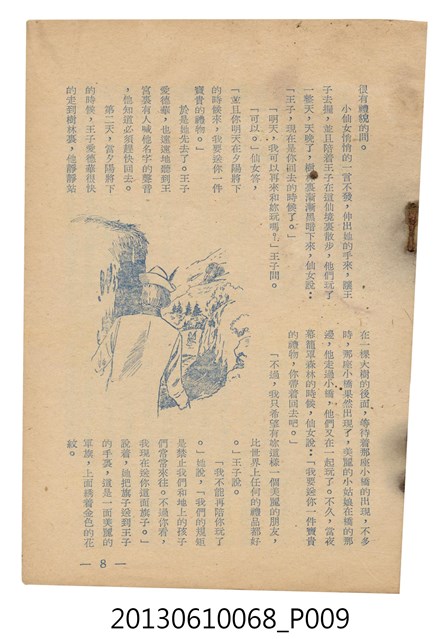 很有禮貌的問。
小仙女悄悄的一言不發，伸出她的手來，讓王
子去握，並且陪着王子在這仙境裏散步，他們玩了
一整天，天晚了，樹林裏漸漸黑暗下來，仙女說：
「王子，現在是你回去的時候了。」
「明天，我可以再來和妳玩嗎？」王子問。
「可以。」仙女答，
「並且你明天在夕陽將下
的時候來，我要送你一件
寶貴的禮物。」
於是她先去了。王子
愛德華，也遠遠地聽到王
宮裏有人喊他名字的聲音
，他知道必須趕快回去。
第二天，當夕陽將下
的時候，王子愛德華很快
的走到樹林裏，他靜靜站
在一棵大樹的後面，等待着那座小橋的出現，不多
時，那座小橋果然出現了，美麗的小姑娘在橋的那
邊，他走過小橋，他們又在一起玩了。不久，當夜
幕籠罩森林的時候，仙女說：「我要送你一件寶貴
的禮物，你帶着回去吧。」
「不過，我只希望有妳這樣一個美麗的朋友，
比世界上任何的禮品都好
。」王子說。
「我不能再陪你玩了
。」她說，「我們的規矩
是禁止我們和地上的孩子
們常常來往。不過你看，
我現在送你這面旗子。」
說着，她把旗子送到王子
的手裏，這是一面美麗的
軍旗，上面綉着金色的花
紋。
— 8 —
20130610068_P009